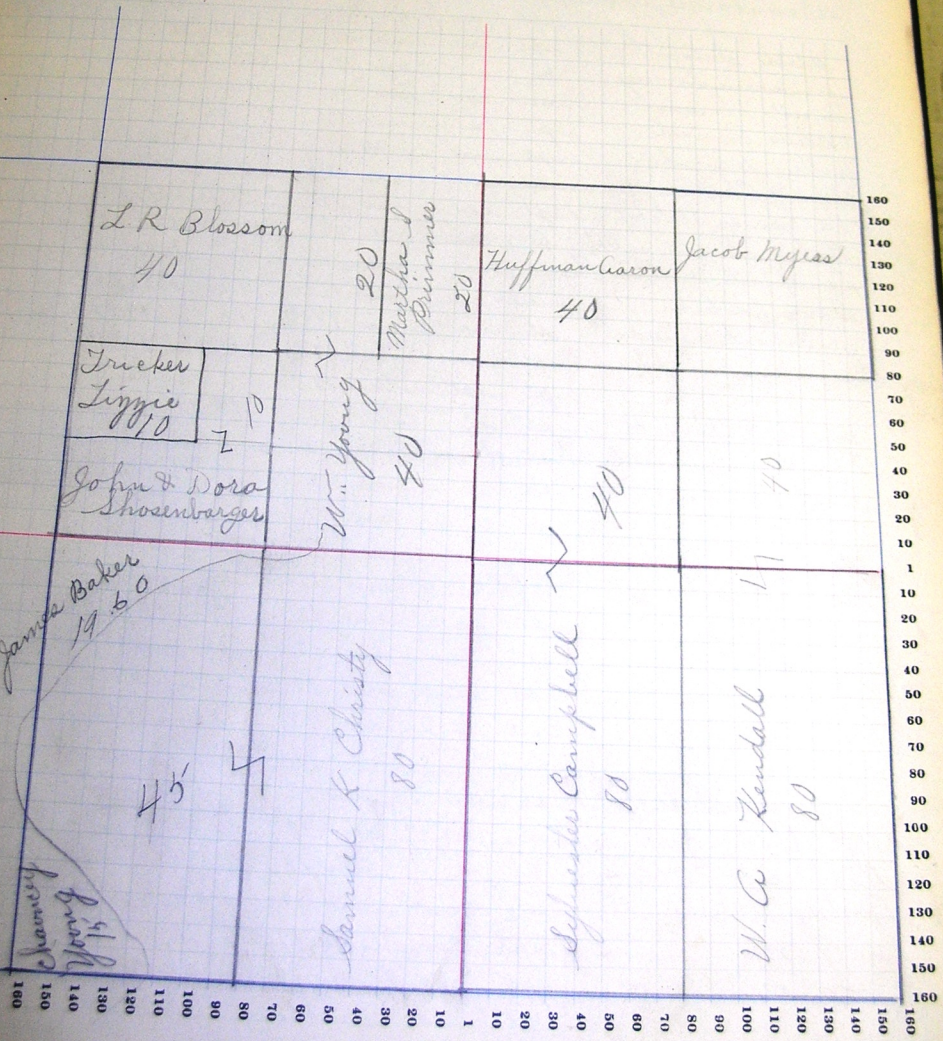 L R Blossom
40
20
Martha S
Primmer
20
Huffman Aaron
40
Jacob Myess
Tricker
Lizzie
10
10
Wm Young
40
40
40
John & Dora
Shosenbarger
James Baker
19.60
45
Samuel K Christy
80
Sylvester Campbell
80
W. A Kendall
80
Chauncey
Young
15
160
150
140
130
120
110
100
90
80
70
60
50
40
30
20
10
1
10
20
30
40
50
60
70
80
90
100
110
120
130
140
150
160
160 150 140 130 120 110 100 90 80 70 60 50 40 30 20 10 1 10 20 30 40 50 60 70 80 90 100 110 120 130 140 150 160